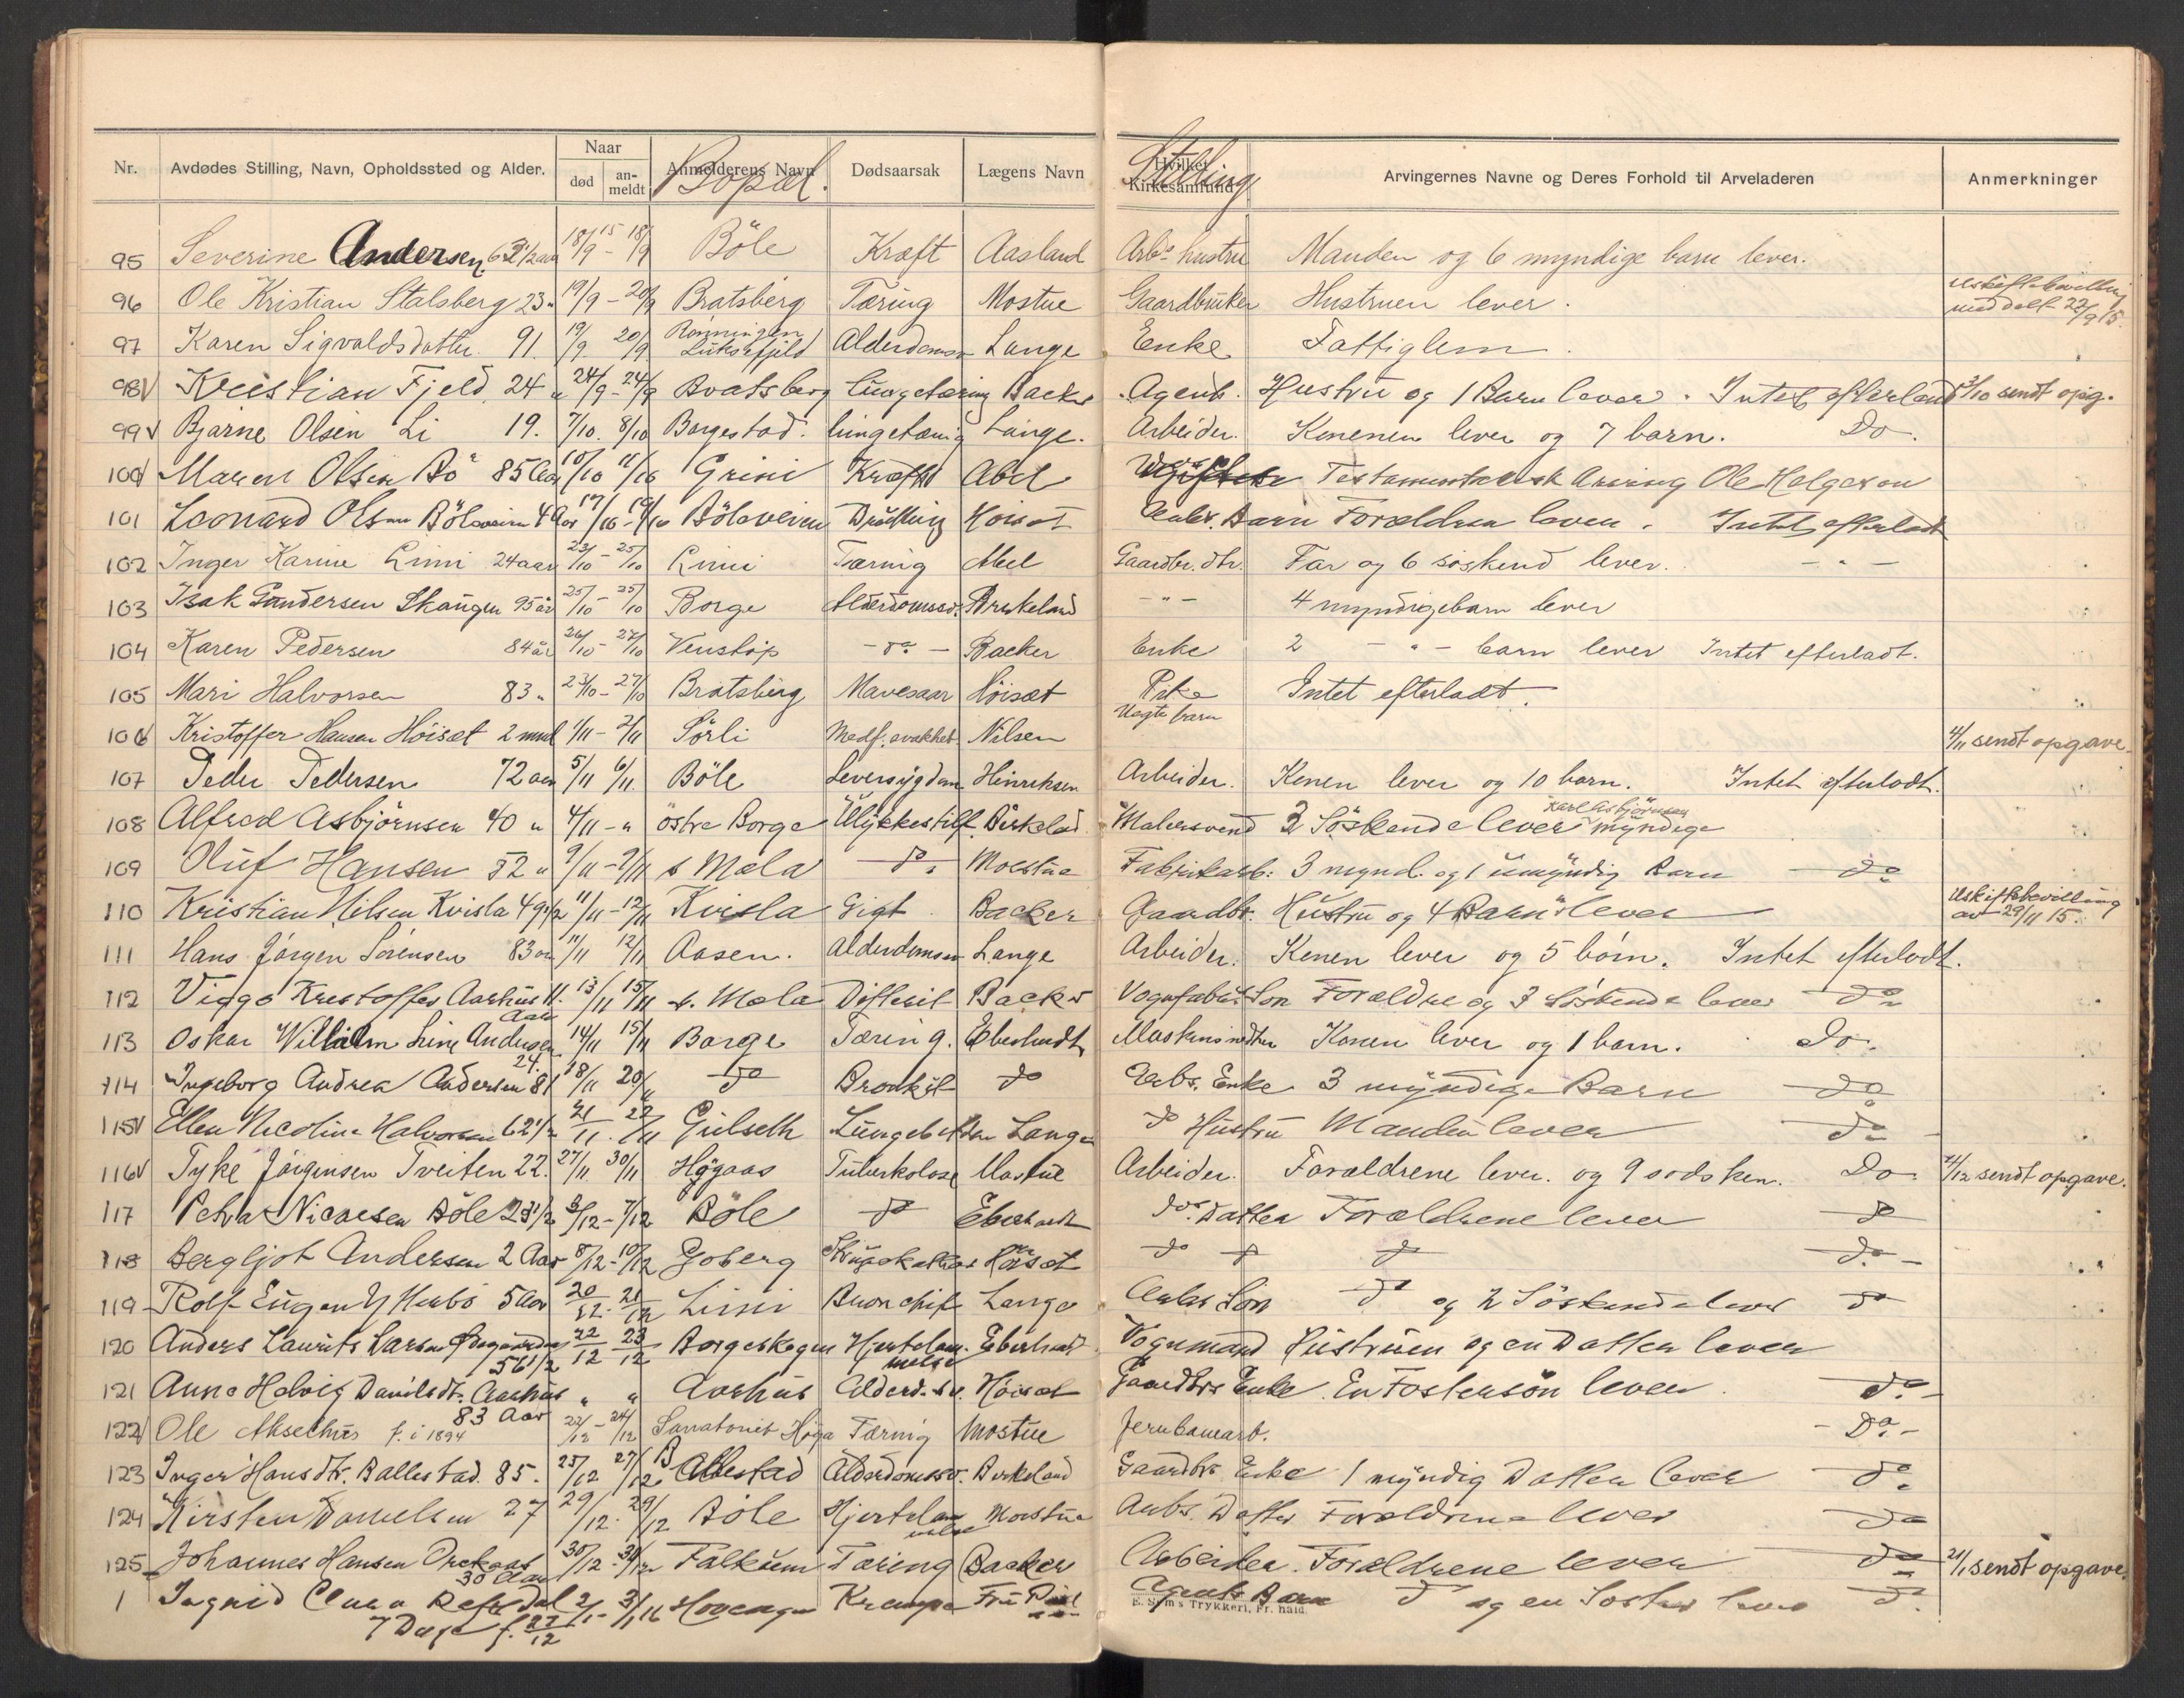 Nr. Avdødes Stilling, Navn, Opholdssted og Alder. Naar død an-meldt Anmelderens Navn Bopæl. Dødsaarsak Lægens Navn Hvilket Kirkesamfund Stilling Arvingernes Navne og Deres Forhold til Arveladeren Anmerkninger
95 Severine Andersen 18/9 15 - 18/9 Böle Kræft Aasland Arbs hustru Manden og 6 myndige barn lever.
96 Ole Kristian Stalsberg 23 " 19/9 - 20/9 Bratsberg Tæring Mostue Gaardbruker Hustruen lever. Uskiftebevilling meddelt 22/9 15.
97 Karen Sigvaldsdatter 91. 19/9 20/9 Rønningen Luksefjeld Alderdomssv Lange Enke Fattiglem.
98 V Kristian Fjeld 24 " 24/9 - 24/9 Bratsberg Lungetæring Backer Agent. Hustru og 1 Barn lever. Intet efterladt 2/10 sendt opg.
99 V Bjarne Olsen Li 19. 7/10. 8/10 Borgestad. Lungetæring Lange. Arbeider. Konenen lever og 7 barn. Do.
100 Maren Olsen Bö 85 Aar 10/10 11/10 Grini Kræft Abel Testamentarisk Arving Ole Holgersen
101 Leonard Olsen Böleveien 4 Aar 17/10 - 19/10 Böleveien Drukning Hoisæt Arbs. Barn Forældren lever. Intet efterladt
102 Inger Karine Limi 24 aar 23/10 - 25/10 Limi Tæring Abel Gaardbr. dtr. Far og 6 søskend lever. - " -
103 Isak Gundersen Skaugen 95 år 25/10 - 25/10 Borge Alderdomssv. Birkeland - " - 4 myndigebarn lever
104 Karen Pedersen 84 år 26/10 - 27/10 Venstöp - do - Backer Enke 2 - " - barn lever Intet efterladt.
105 Mari Halvorsen 83 " 23/10 - 27/10 Bratsberg Mavesaar Höisæt Pike Intet efterladt.
106 Kristoffer Hansen Höisæt 2 mnd 1/11 - 2/11 Sörli Medf. svakhet. Nilsen Uegte barn 4/11 sendt opgave.
107 Peder Pedersen 72 aar 5/11 6/11 Böle Leversygdom Henriksen Arbeider. Konen lever og 10 barn. Intet efterladt.
108 Alfred Asbjörnsen 40 " 4/11 - " östre Borge Ulykkestilf. Birkelad Malersvend 2 Söskende lever myndige Karl Asbjörnsen
109 Oluf Hansen 52 " 9/11 - 9/11 s Mæla do. Moestue Fabrikarb: 3 mynd. og 1 umyndig Barn do
110 Kristian Nilsen Kvisla 49 1/2 11/11 - 12/11 Kvisla Gigt. Backer Gaardbr. Hustru og 4 Barn lever Uskiftebevilling av 29/11 15.
111 Hans Jörgen Sörensen 83 aar 11/11 12/11 Aasen. Alderdomssv Lange Arbeider. Konen lever og 5 börn. Intet efterladt.
112 Viggo Kristoffer Aarhus 11. Aar 13/11 15/11 s. Mæla Difterit Backer Vognfabr. Son Forældre og 3 Söskende lever do
113 Oskar Wilhelm Andersen 24. 14/11 15/11 Borge Tæring. Eberhardt Maskinsnedker Konen lever og 1 barn. Do.
114 Ingeborg Andrea Andersen 81 18/11 20/11 do Bronkit do Arbs. Enke 3 myndige Barn do
115 V Ellen Nicoline Halvorsen 62 1/2 21/11. 22/11 Gulseth Lungebetden Lange do Hustru Manden lever do
116 V Tyke Jörgensen Tveiten 22. 27/11 30/11 Høgaas Tuberkolose Mostue Arbeider. Forældrene lever. og 9 sødsken. Do 2/12 sendt opgave.
117 Petra Nicolaisen Böle 23 1/2 3/12 - 7/12 Böle do Eberhardt do. Datter Forældrene lever do
118 Bergljot Andersen 2 Aar 8/12 - 10/12 Gjoberg Höisæt do do do do. -
119 Rolf Eugen 5 Aar 20/12. 21/12 Limi Bronchit Lange Arbs Son do og 2 Söskende lever do
120 Anders Laurits Larsen 56 1/2 22/12 23/12 Borgeskogen Hjertelammelse Eberhardt Vognmand Hustruen og en Datter lever
121 Anne Helvig Danilsdt. Aarhus 83 Aar " " Aarhus Alderd. sv. Höisæt Gaardbrs Enke. En Fostersön lever. do. -
122 V Ole Akselhus f. i 1894 22/12 - 24/12 Sanatoriet Høga Tæring Mostue Jernbanearb. - Do. -
123 Inger Hansdtr. Ballestad. 85. 25/12 27/12 Ballestad Alderdomssv. Birkeland Gaardbrs Enke 1 myndig Datter lever do.
124 Kirsten Danielsen 27 29/12. 29/12 Böle Hjertelammelse Moestue Arbs. Datter Forældrene lever do
125 Johannes Hansen 30 Aar 30/12. 31/12 Falkum Tæring Backer Arbeider. Forældrene lever do 21/1 sendt opgave.
1 Ingrid Clara 7 Dage f. 27/12 2/1 - 3/1 16 Hovenga Krampe Fru Agents Barn do og en Söster lever do.
E. Sem's Trykkeri, Fr.hald.